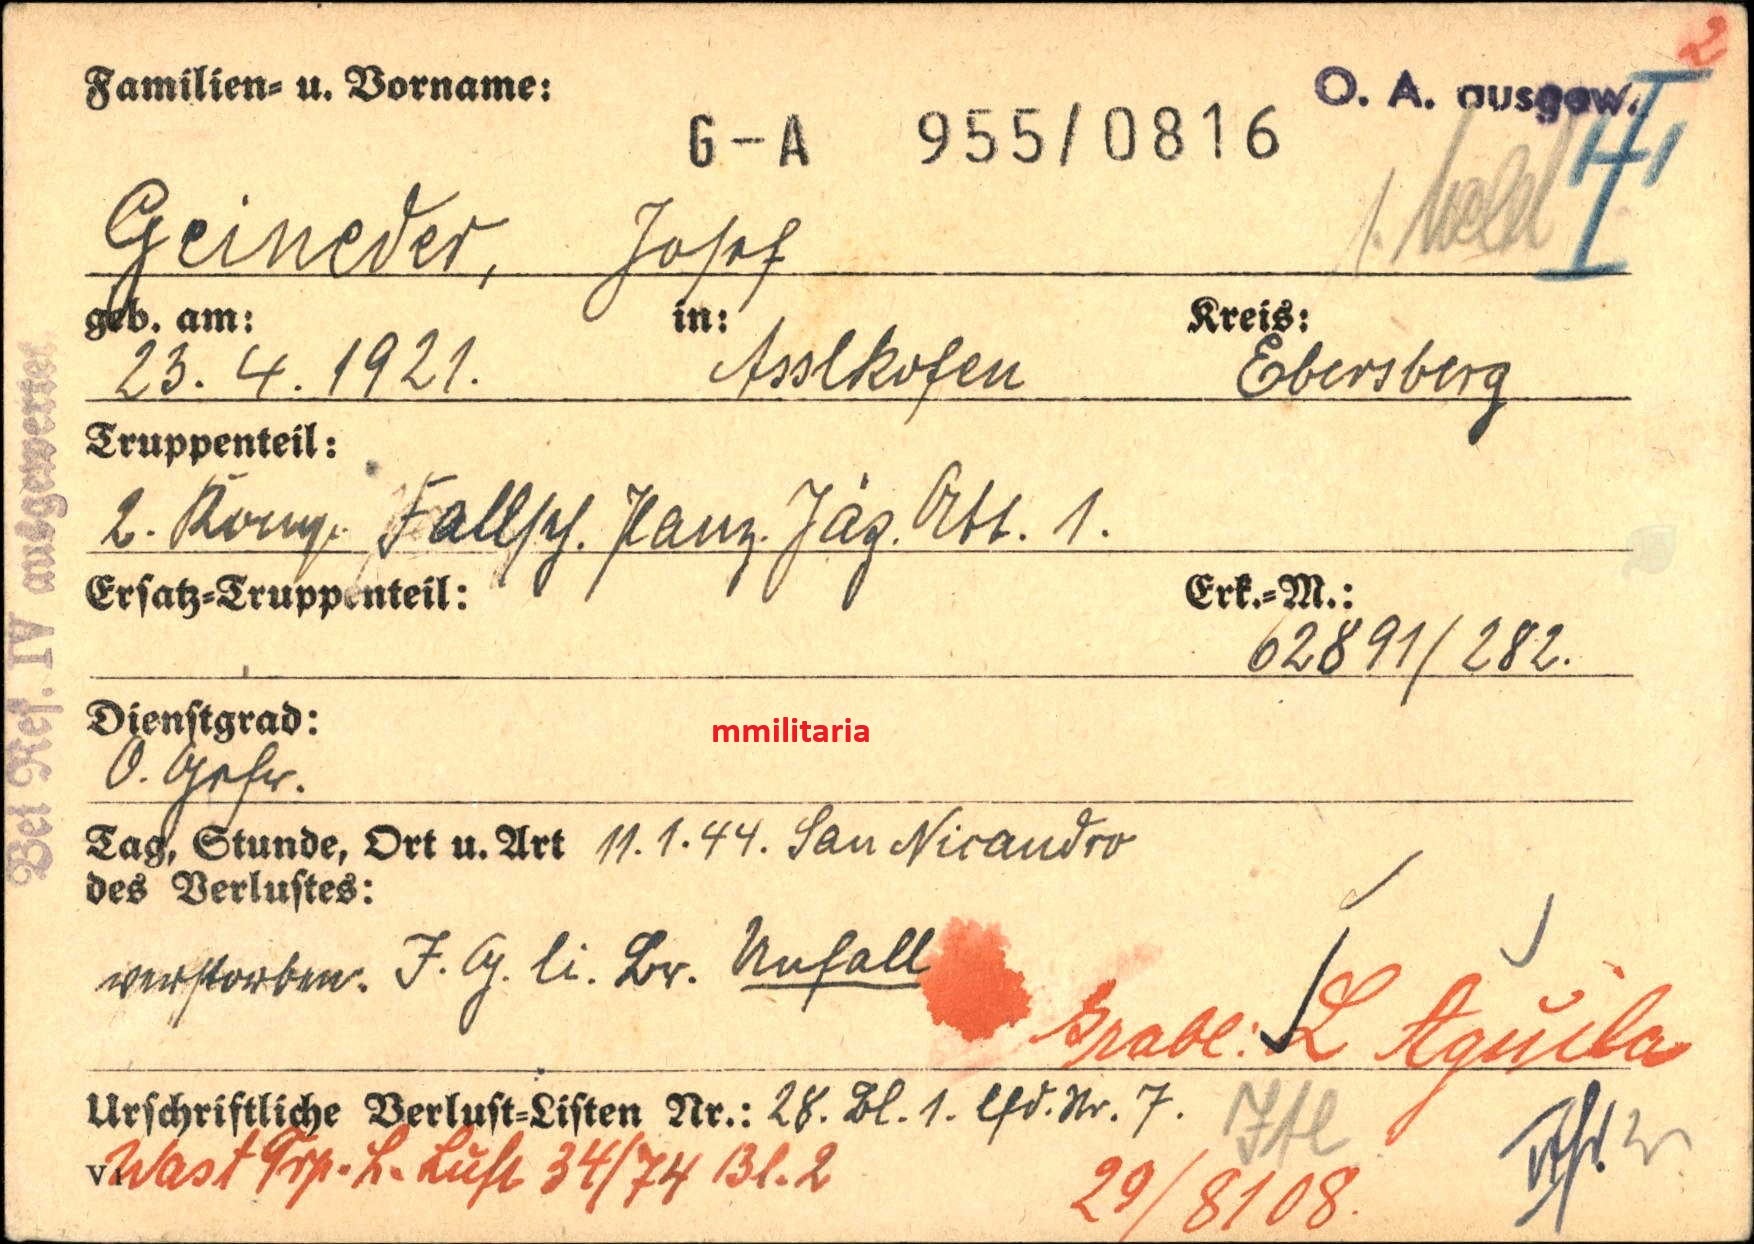 2
Familien- u. Vorname:
O. A. ausgew.
G-A 955/0816
Geineder, Josef
geb. am: in: Kreis:
23. 4. 1921. Asslkofen Ebersberg
Truppenteil:
2. Komp. Fallsch. Panz. Jäg. Abt. 1.
Ersatz-Truppenteil: Erk.-M.:
62891/282.
Dienstgrad:
mmilitaria
O. Gefr.
Tag, Stunde, Ort u. Art 11.1.44. San Nicandro
des Verlustes:
verstorben. I. G. li. Br. Unfall
Grabl: L Aquila
Urschriftliche Verlust-Listen Nr.: 28. Bl. 1. lfd. Nr. 7.
Wast Trp. L. Luft 34/74 Bl. 2
29/8108.
Bei Ref. IV ausgewertet